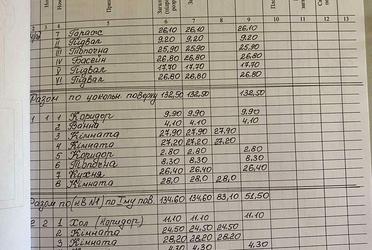 2 3 4 5 6 7 8 9 10 11 12 13
Гараж 26.10 26.10 26.10
II Підвал 9.20 9.20 9.20
III Топочна 25,90 25,90 25,90
IV Басейн 26.80 26.80 26.80
V Підвал 17.70 17.70 17.70
VI 26.80 26.80 26.80
Разом по цокольн. поверху 132,50 132,50 132,50
1 1 1 Коридор 9.90 9.90 9.90
2 Ванна 4.10 4.10 4.10
3 Кімната 27,90 27,90 27,90
4 Кімната 27.20 27.20 27.20
5 Коридор 2.80 2.80 2.80
6 Топочна 8.30 8.30 8.30
7 Кухня 26.40 26.40 26.40
8 Кімната 28,0 28,0
Разом по 134.60 134.60 83,10 51,50
2 2 1 Хол (Коридор) 11.10 11.10 11.10
2 Кімната 24.50 24.50 24.50
3 Кімната 28.20 28.20 28.20
4.30 4.30 4.30